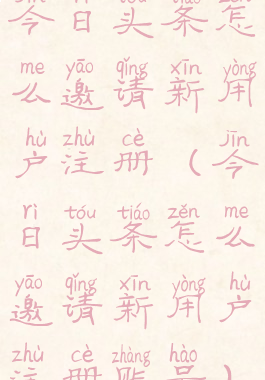 jīn rì tóu tiáo zěn
今日头条怎
me yāo qǐng xīn yòng
么邀请新用
hù zhù cè jīn
户注册（今
rì tóu tiáo zěn me
日头条怎么
yāo qǐng xīn yòng hù
邀请新用户
zhù cè zhàng hào
注册账号）